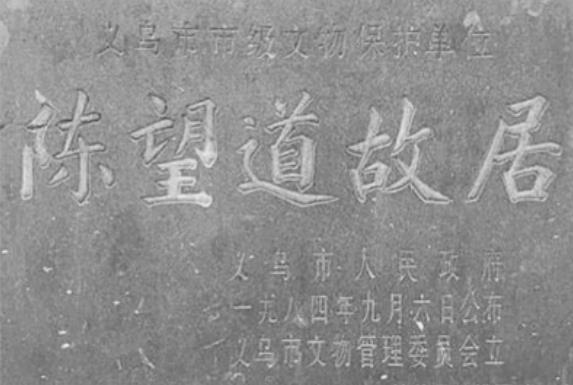 义乌市市级文物保护单位
陈望道故居
义乌市人民政府
一九八四年九月六日公布
义乌市文物管理委员会立